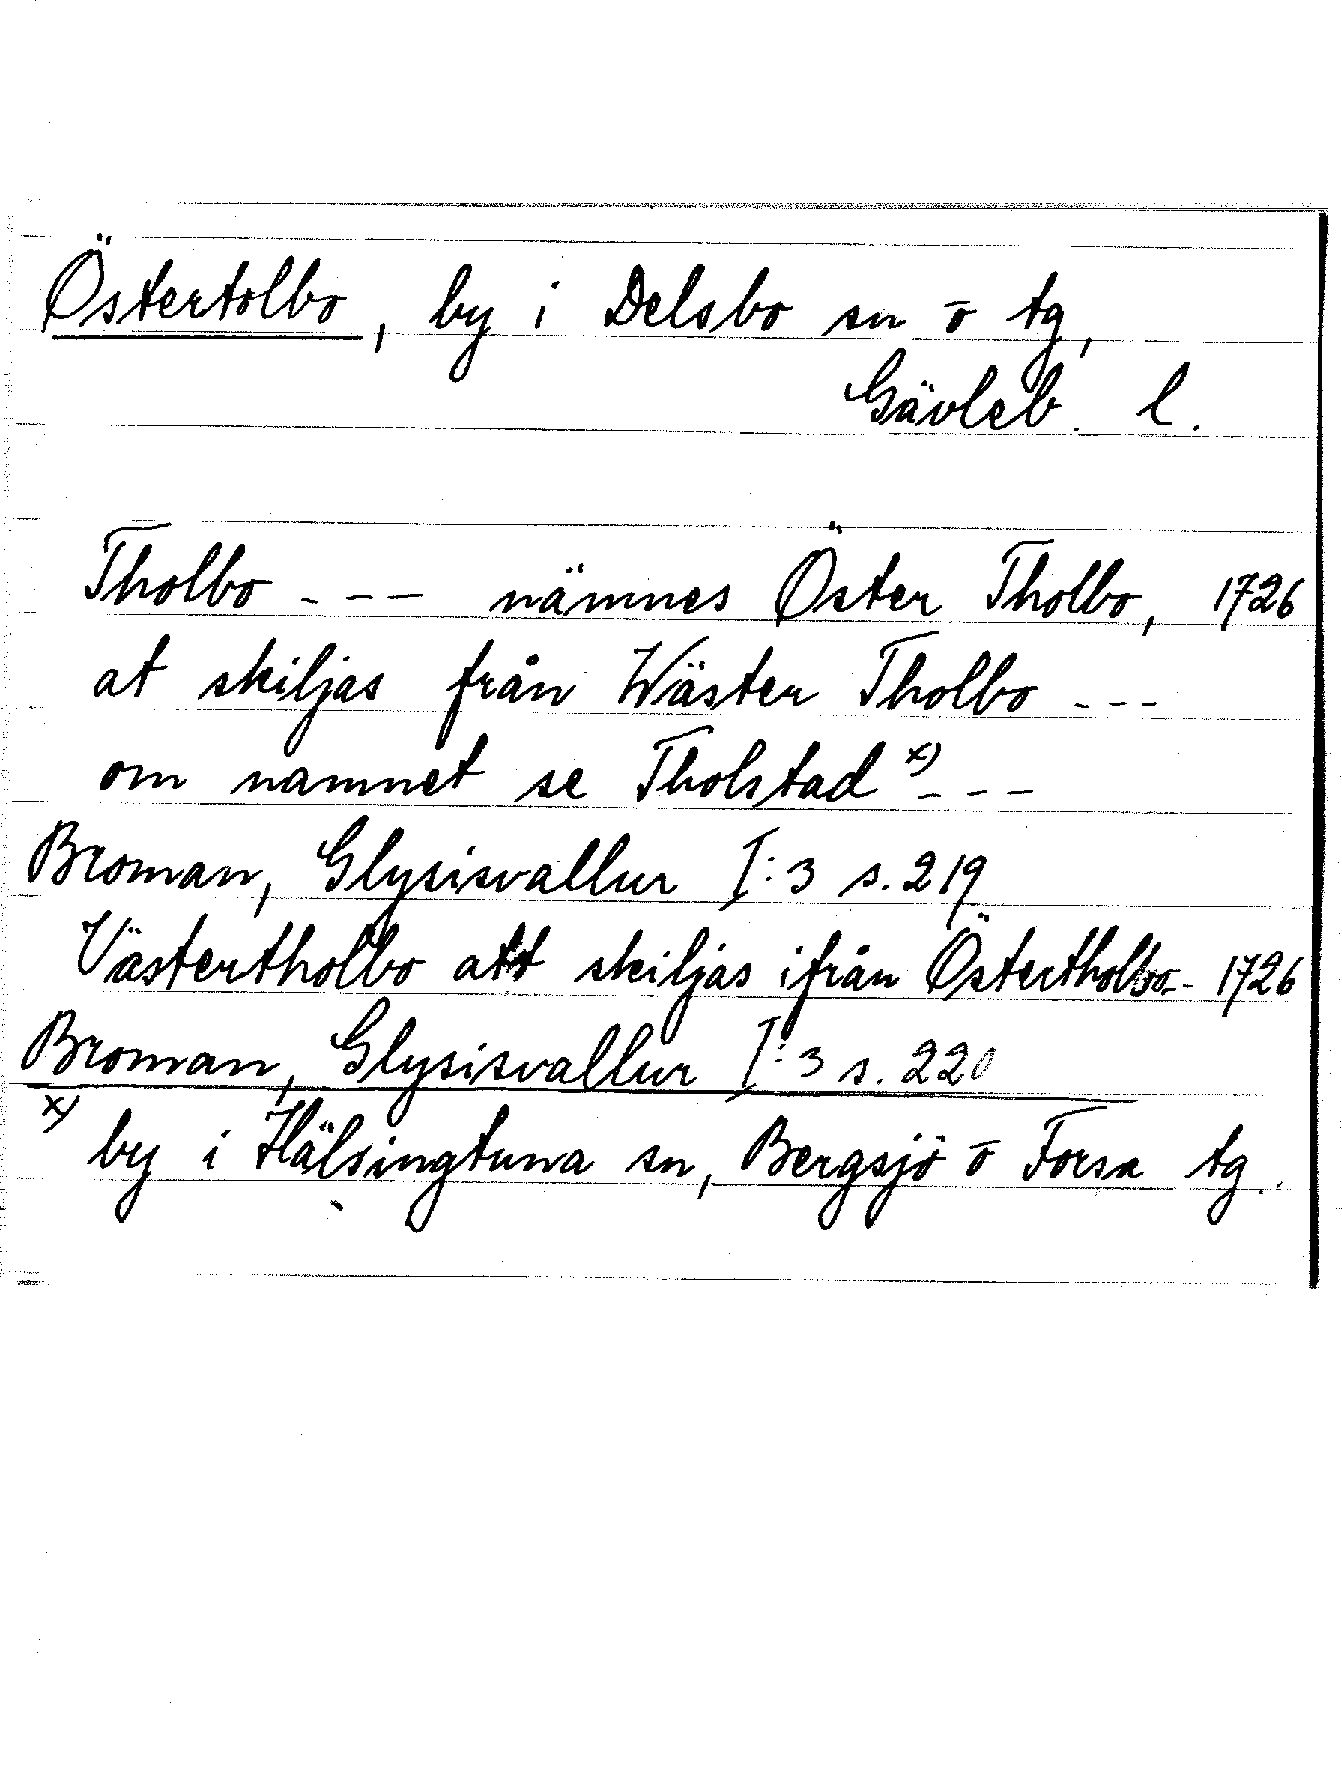 Östertolbo, by i Delsbo sn o tg,
Gävleb. l.
Tholbo - - - nämnes Öster Tholbo, 1726
at skiljas från Wäster Tholbo - - -
om namnet se Tholstad x) - - -
Broman, Glysisvallur I:3 s. 219
Västertholbo att skiljas ifrån Östertholbo - - 1726
Broman, Glysisvallur I:3 s. 220
x) by i Hälsingtuna sn, Bergsjö o Forsa tg.